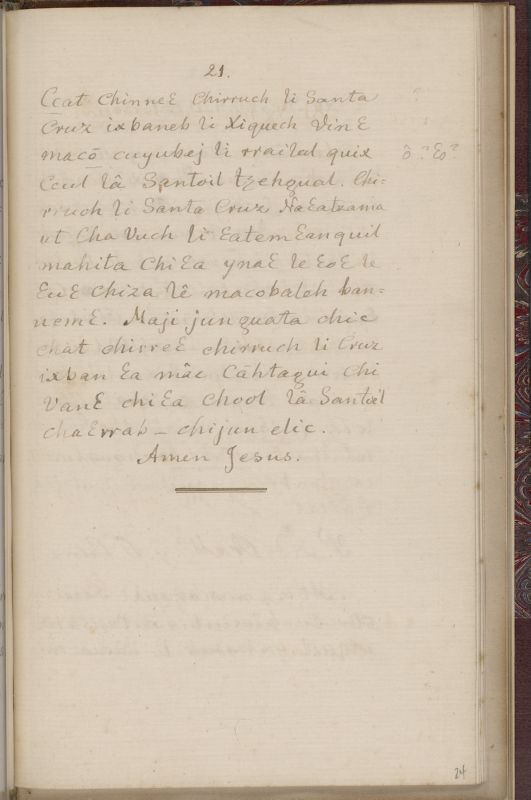 21.
Ccat chinneƐ chirruch li Santa
Cruz ixbaneb li Xiquech VinƐ
macō cuyubej li rrailal quix ô? Ɛo?
Ccul lâ Santoil tzehqual. Chi=
rruch li Santa Cruz ÑaƐatzania
ut Cha Vuch li Ɛatem Ɛanquil
mahita ChiƐa ynaƐ le ƐoƐ le
ƐuƐ chiza lê macobaleh ban=
nemƐ. Maji junquata chic
chat chirreƐ chirruch li Cruz
ixban Ɛa mâc Cāhtagui Chi
VanƐ chiƐa Chool lâ Santoil
chaƐrrab - chijun elic.
Amen Jesus.
24